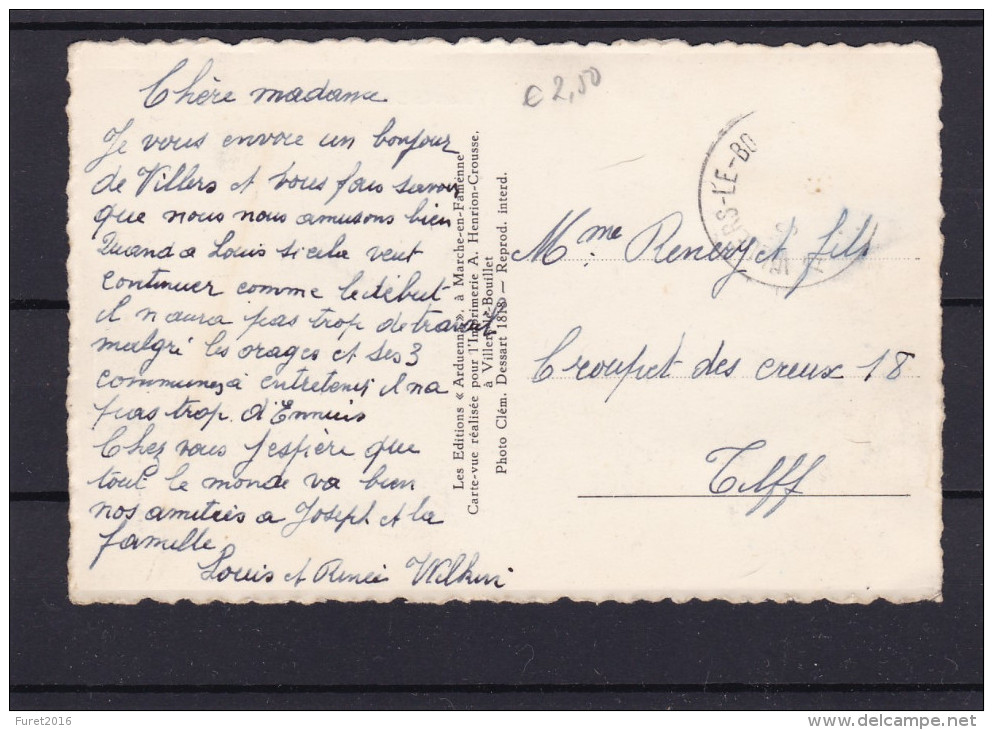 Chère madame
Je vous envoie un bonjour
de Villers et vous fais savoir
que nous nous amusons bien
Quand a Louis si cela veut
continuer comme le début
il n'aura pas trop de travail
malgré les orages et ses 3
communes à entretenir il n'a
pas trop d'Ennuis
Chez vous J'espère que
tout le monde va bien
nos amitiés a Joseph et la
famille.
Louis et Renée
Les Editions « Arduenna », à Marche-en-Famenne
Carte-vue réalisée pour l'Imprimerie A. Henrion-Crousse.
à Villers-le-Bouillet
Photo Clém. Dessart 1818 — Reprod. interd.
€ 2,50
ERS-LE-BO
Mme. Renery et fils
Croupet des creux 18
Tilff
Furet2016
delcampe.net